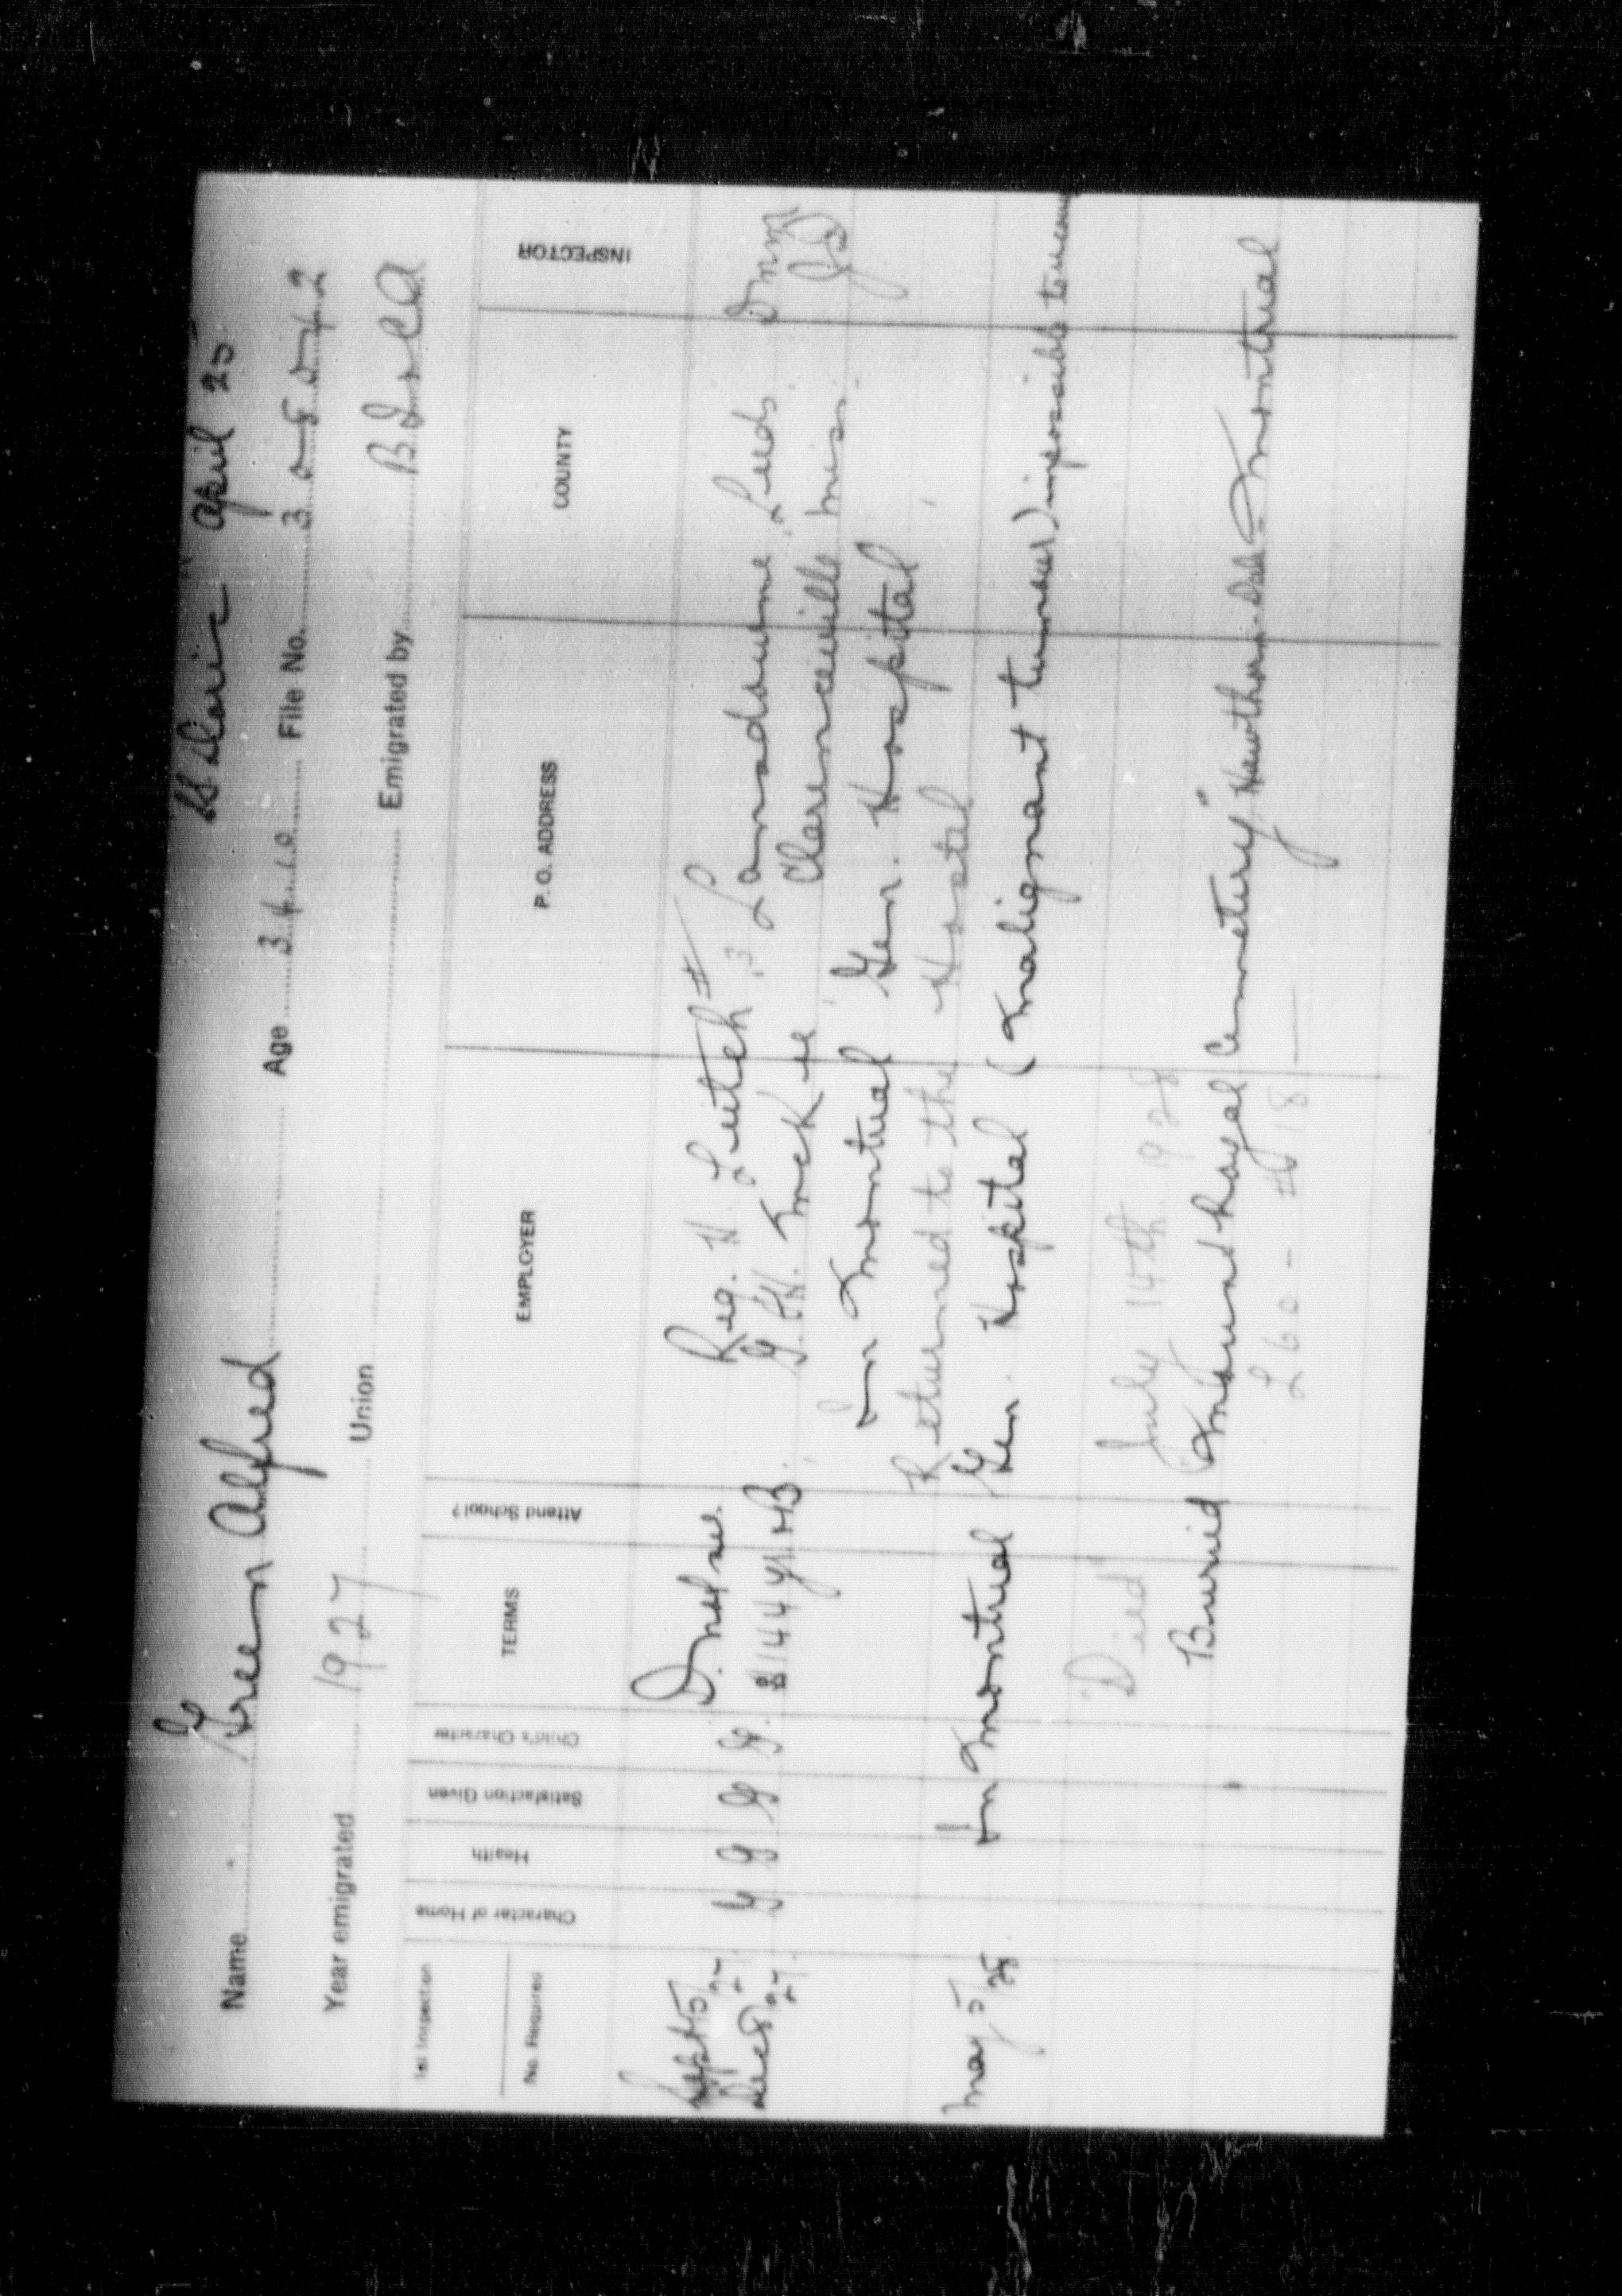 SS Doric April 25
Name Green Alfred Age 3.4.10 File No. 3
Year emigrated 1927 Union Emigrated by
1st Inspection
No. Required
Character of Home Health Satisfaction Given Child's Character TERMS Attend School? EMPLOYER P. O. ADDRESS COUNTY INSPECTOR
Sept 5 27. D. not see. Reg. H. Leitch #
Dec 8 27. G G G G. $144 yr HB. G. H. McKee Lansdowne Leeds
Clarenceville Miss.
In Montreal Gen. Hospital
Returned to the Hostel
May 5 28 In Montreal Gen. Hospital (Malignant tumour) impossible to
Died July 14th 1928
Buried Mount Royal Cemetery "Hawthorn-Dale" Montreal
L 60 - # 18 —